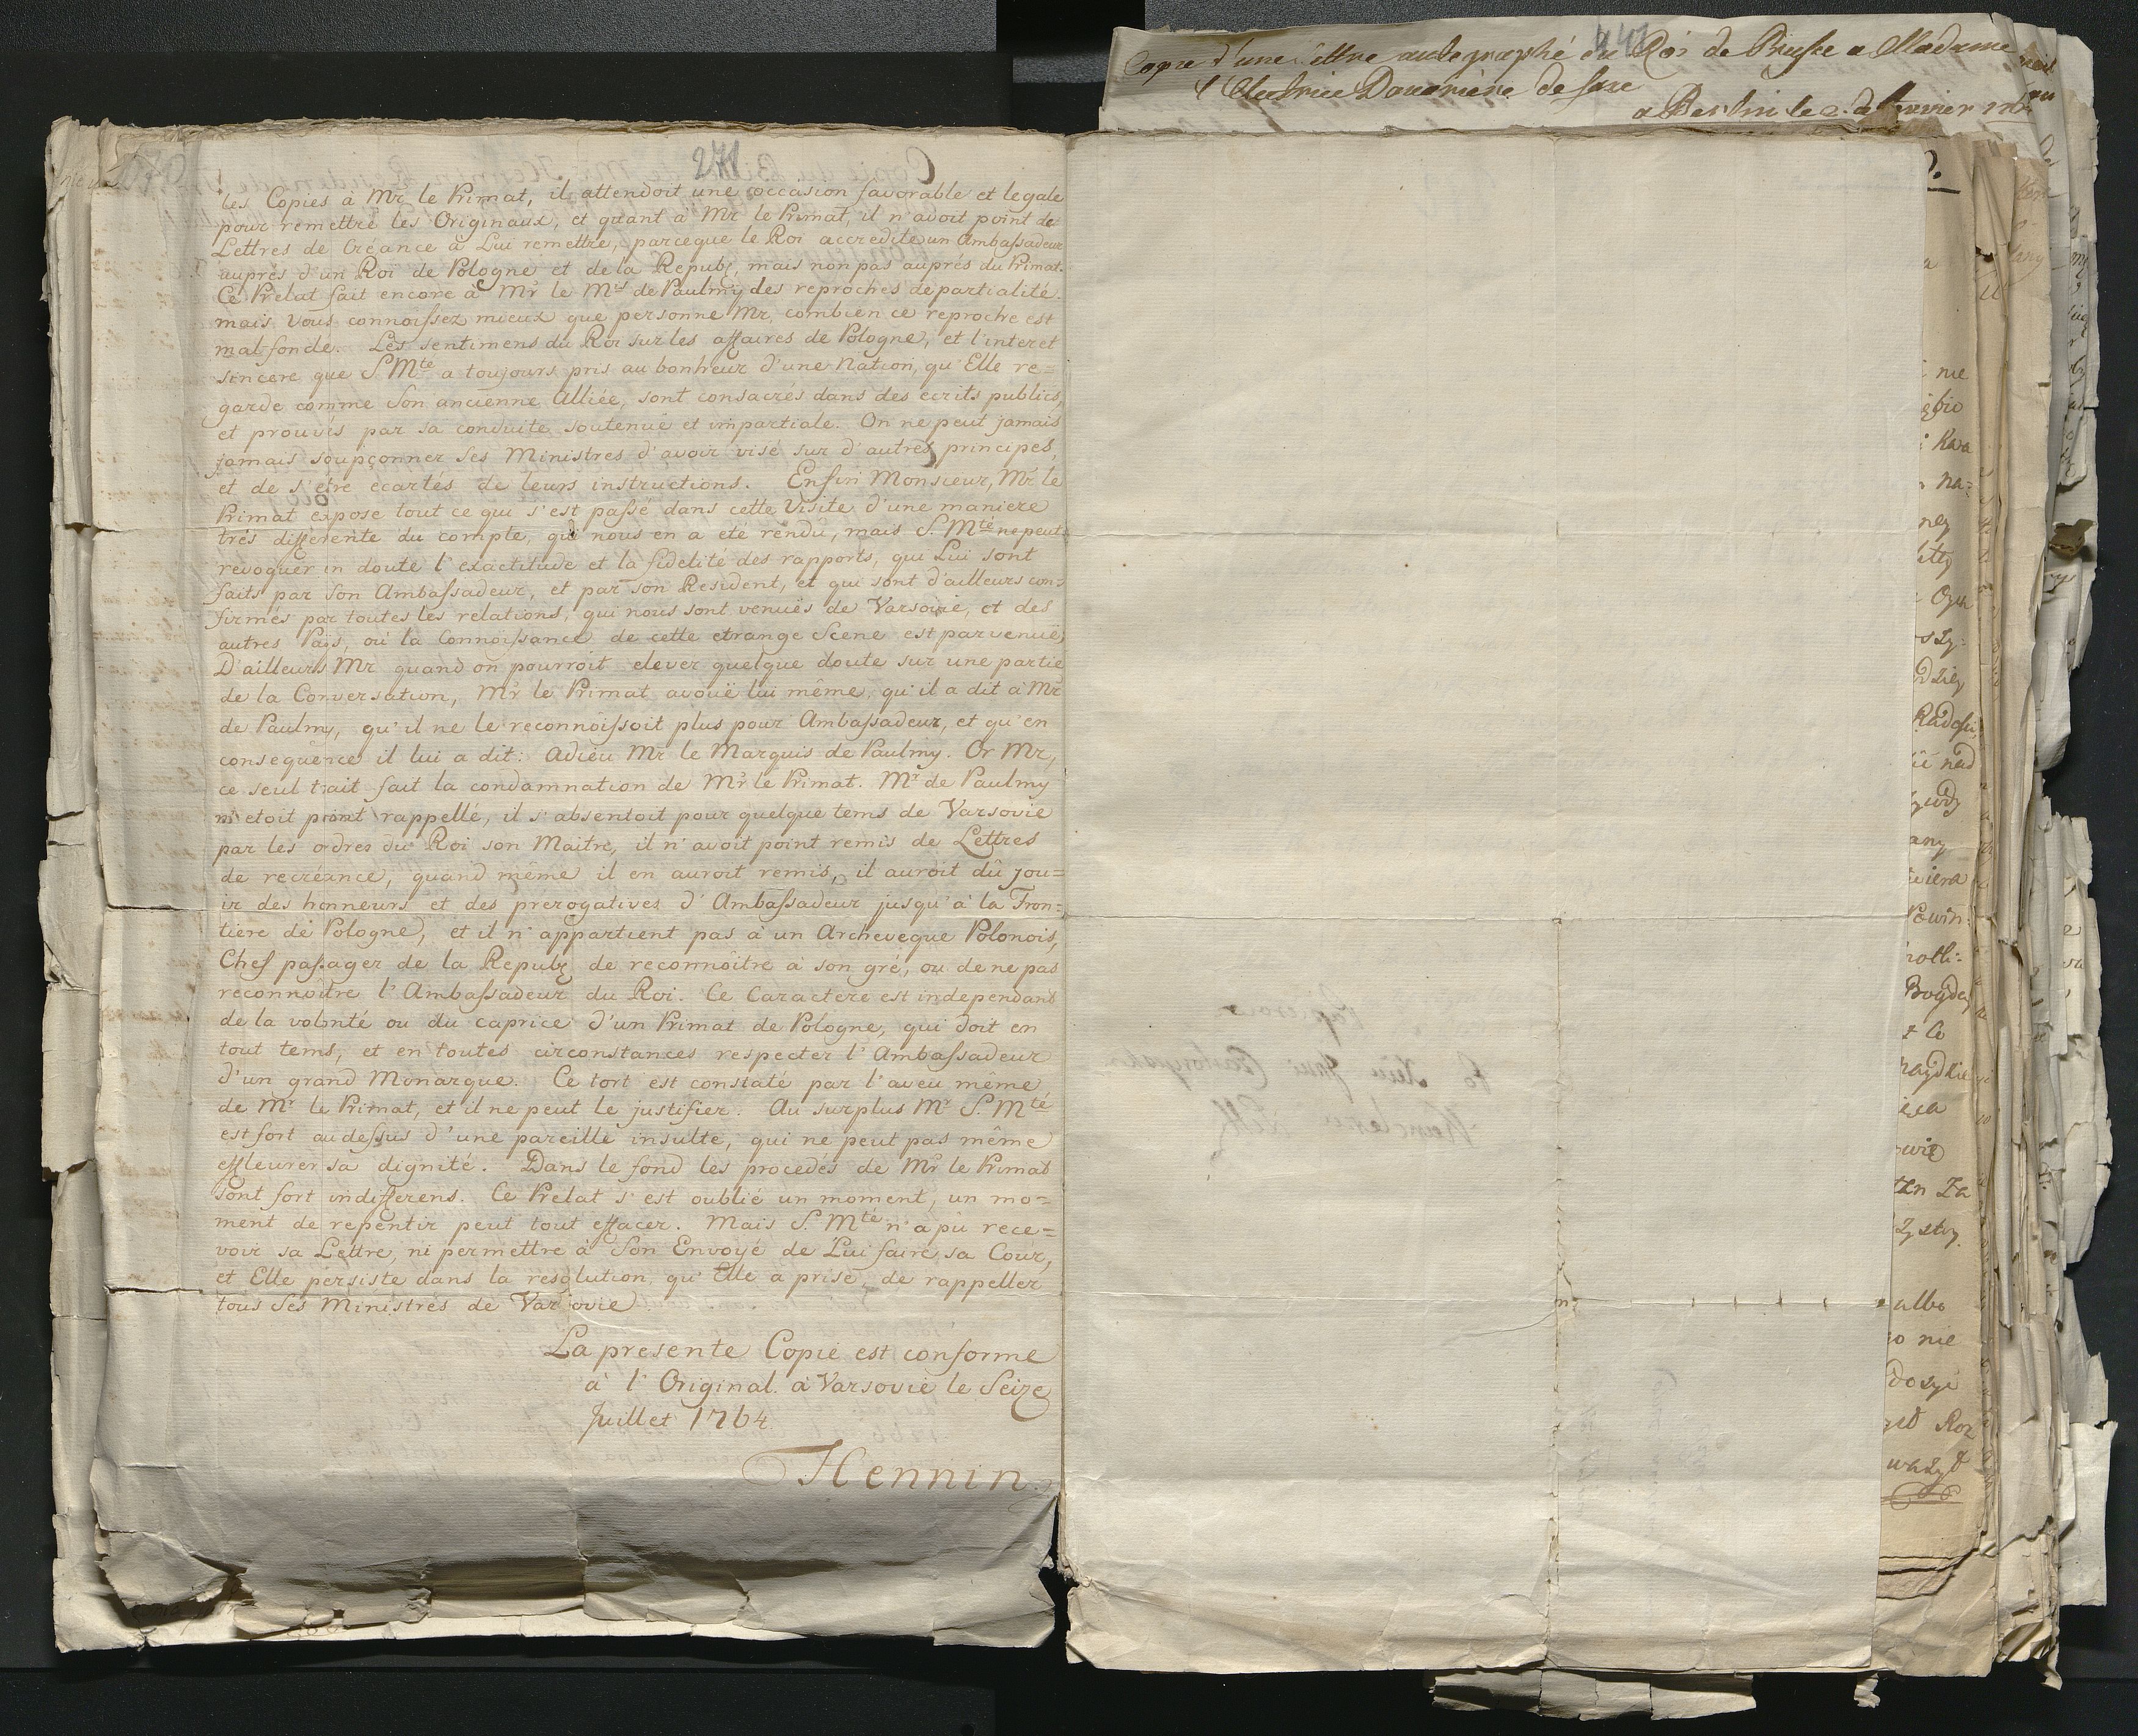 271
les Copies à Mr. le Primat, il attendoit une occasion favorable et legale
pour remettre les Originaux, et quant à Mr. le Primat, il n'avoit point de
Lettres de Créance à Lui remettre, parceque le Roi accredite un Ambassadeur
auprés d'un Roi de Pologne et de la Republ, mais non pas auprés du Primat.
Ce Prelat fait encore à Mr. le Mis de Paulmy des reproches de partialité.
mais vous connoissez mieux que personne Mr. combien ce reproche est
mal fondé. Les sentimens du Roi sur les affaires de Pologne, et l'interet
sincere que S. Mté a toujours pris au bonheur d'une Nation, qu'Elle re=
garde comme Son ancienne Alliée, sont consacrés dans des ecrits publics,
et prouvés par sa conduite soutenuë et impartiale. On ne peut jamais
jamais soupçonner ses Ministres d'avoir visé sur d'autres principes,
et de s'etre ecartés de leurs instructions. Enfin Monsieur, Mr. le
Primat expose tout ce qui s'est passé dans cette Visite d'une maniere
trés differente du compte, qui nous en a eté rendû, mais S. Mté ne peut
revoquer in doute l'exactitude et la fidelité des rapports, qui Lui sont
faits par Son Ambassadeur, et par son Resident, et qui sont d'ailleurs con=
firmés par toutes les relations, qui nous sont venuës de Varsovie, et des
autres Païs, où la Connoissance de cette etrange Scene est parvenuë,
D'ailleurs Mr. quand on pourroit elever quelque doute sur une partie
de la Conversation, Mr. le Primat avouë lui même, qu'il a dit à Mr.
de Paulmy, qu'il ne le reconnoissoit plus pour Ambassadeur, et qu'en
consequence il lui a dit: Adieu Mr. le Marquis de Paulmy. Or Mr,
ce seul trait fait la condamnation de Mr. le Primat. Mr. de Paulmy
n'etoit point rappellé, il s'absentoit pour quelque tems de Varsovie
par les ordres du Roi son Maitre, il n'avoit point remis de Lettres
de recréance, quand même il en auroit remis, il auroit dû jou=
ir des honneurs et des prerogatives d'Ambassadeur jusqu'à la Fron=
tiere de Pologne, et il n'appartient pas à un Archeveque Polonois,
Chef passager de la Republ de reconnoitre à son gré, ou de ne pas
reconnoitre l'Ambassadeur du Roi. Ce Caractere est independant
de la volonté ou du caprice d'un Primat de Pologne, qui doit en
tout tems, et en toutes circonstances respecter l'Ambassadeur
d'un grand Monarque. Ce tort est constaté par l'aveu même
de Mr. le Primat, et il ne peut le justifier. Au surplus Mr. S. Mté
est fort au dessus d'une pareille insulte, qui ne peut pas même
effleurer sa dignité. Dans le fond les procedés de Mr. le Primat
sont fort indifferens. Ce Prelat s'est oublié un moment, un mo=
ment de repentir peut tout effacer. Mais S. Mté n'a pû rece=
voir sa Lettre, ni permettre à Son Envoyé de Lui faire sa Cour,
et Elle persiste dans la resolution, qu'Elle a prise, de rappeller
tous Ses Ministres de Varsovie
La presente Copie est conforme
à l'Original. à Varsovie le Seize
Juillet 1764
Hennin
Copie d'une lettre autographe du Roi de Prusse a Madame
l'Electrice Douariere de Saxe
a Berlin le
nie
Kara
na=
Radosci
nad
any
Powin=
Bogda
albo
nie